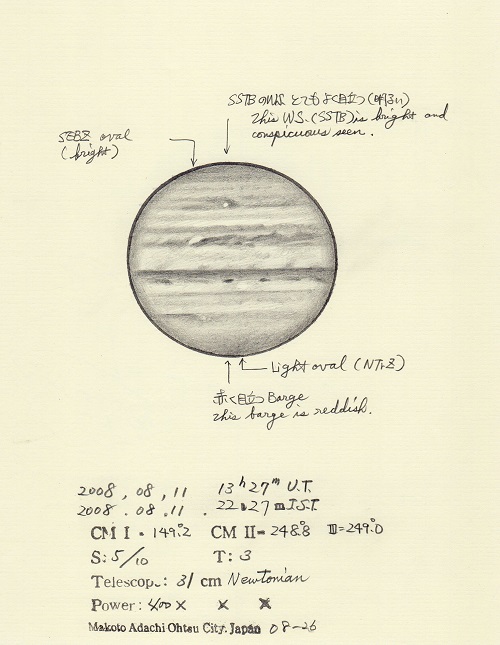 SSTBのW.S. とてもよく目立つ(明るい)
This W.S. (SSTB) is bright and
conspicuous seen.
SEBZ oval
(bright)
Light oval (NTrZ)
赤く目立つ Barge
This barge is reddish.
2008, 08, 11 13h27m U.T.
2008. 08. 11. 22h27m J.S.T.
CM I = 149.°2 CM II = 248.°8 III=249.°0
S: 5/10 T: 3
Telescop.: 31 cm Newtonian
Power: 400 x x x
Makoto Adachi Ohtsu City. Japan 08-26